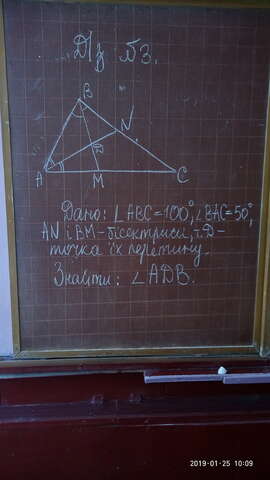 Д/з №3.
B
N
D
A
M
C
Дано: ∠ABC=100°, ∠BAC=50°,
AN і BM-бісектриси, т.D-
точка їх перетину.
Знайти: ∠ADB.
2019-01-25 10:09